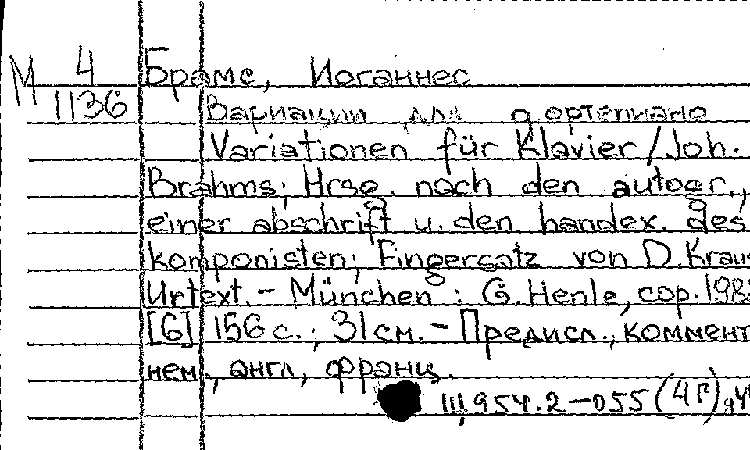 М 4 Брамс, Иоганнес
1136 Вариации для фортепиано
Variationen für Klavier / Joh.
Brahms; Hrsg. nach den autogr.,
einer abschrift u. den handex. des
komponisten; Fingersatz von D. Kraus
Urtext. - München : G. Henle, cop. 198
[6] 156 с.; 31 см. - Предисл., коммент
нем., англ, франц.
Щ954.2-055(4Г)